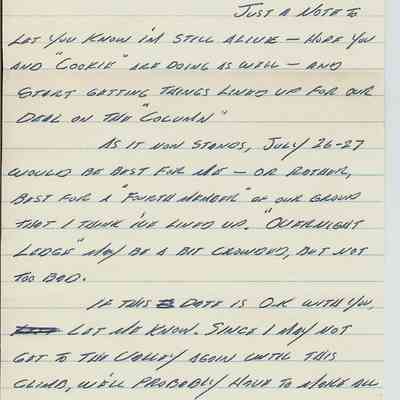 JUST A NOTE TO
LET YOU KNOW I'M STILL ALIVE – HOPE YOU
AND "COOKIE" ARE DOING AS WELL – AND
START GETTING THINGS LINED UP FOR OUR
DEAL ON THE "COLUMN"
AS IT NOW STANDS, JULY 26-27
WOULD BE BEST FOR ME – OR RATHER,
BEST FOR A "FOURTH MEMBER" OF OUR GROUP
THAT I THINK I'VE LINED UP. "OVERNIGHT
LEDGE" MAY BE A BIT CROWDED, BUT NOT
TOO BAD.
IF THIS DATE IS O.K WITH YOU,
LET ME KNOW. SINCE I MAY NOT
GET TO THE VALLEY AGAIN UNTIL THIS
CLIMB, WE'LL PROBABLY HAVE TO MAKE ALL